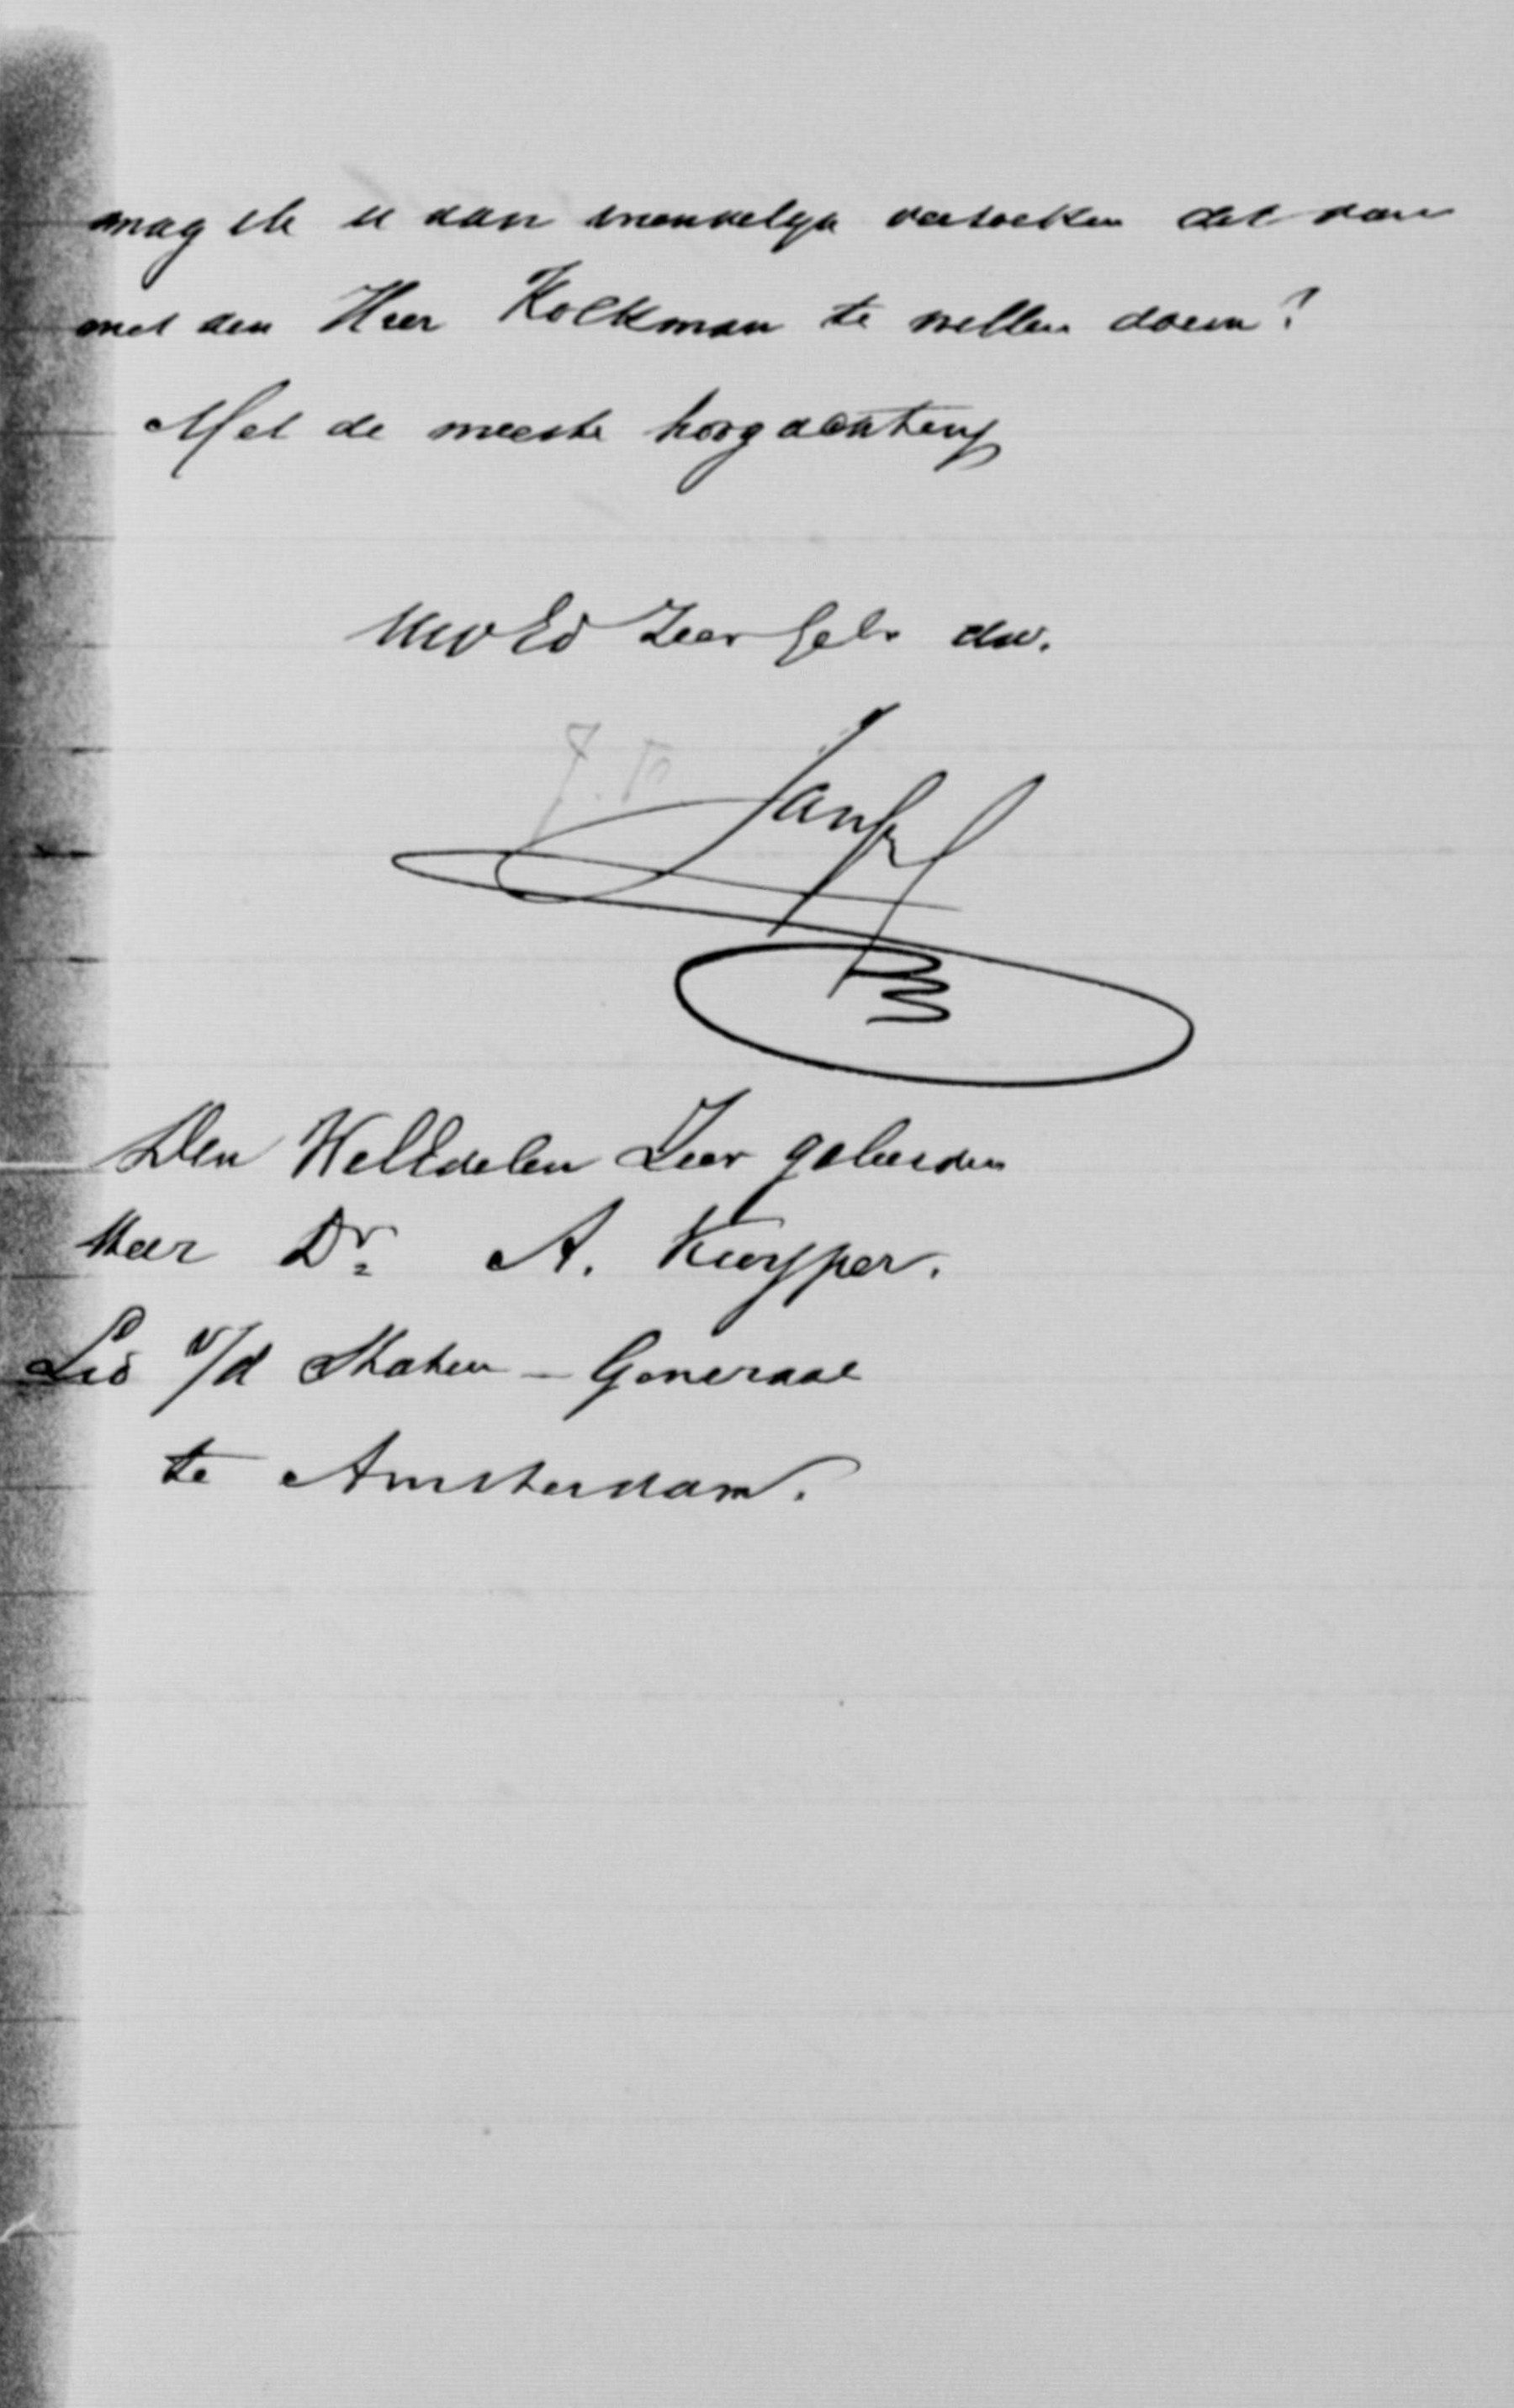 mag ik u dan vriendelijk verzoeken dat dan
met den Heer Kolkman te willen doen?
Met de meeste hoogachting
UWEd Zeer Gel. dw.
Den WelEdelen Zeer geleerden
Heer Dr. A. Kuyper.
Lid v/d Staten - Generaal
te Amsterdam.